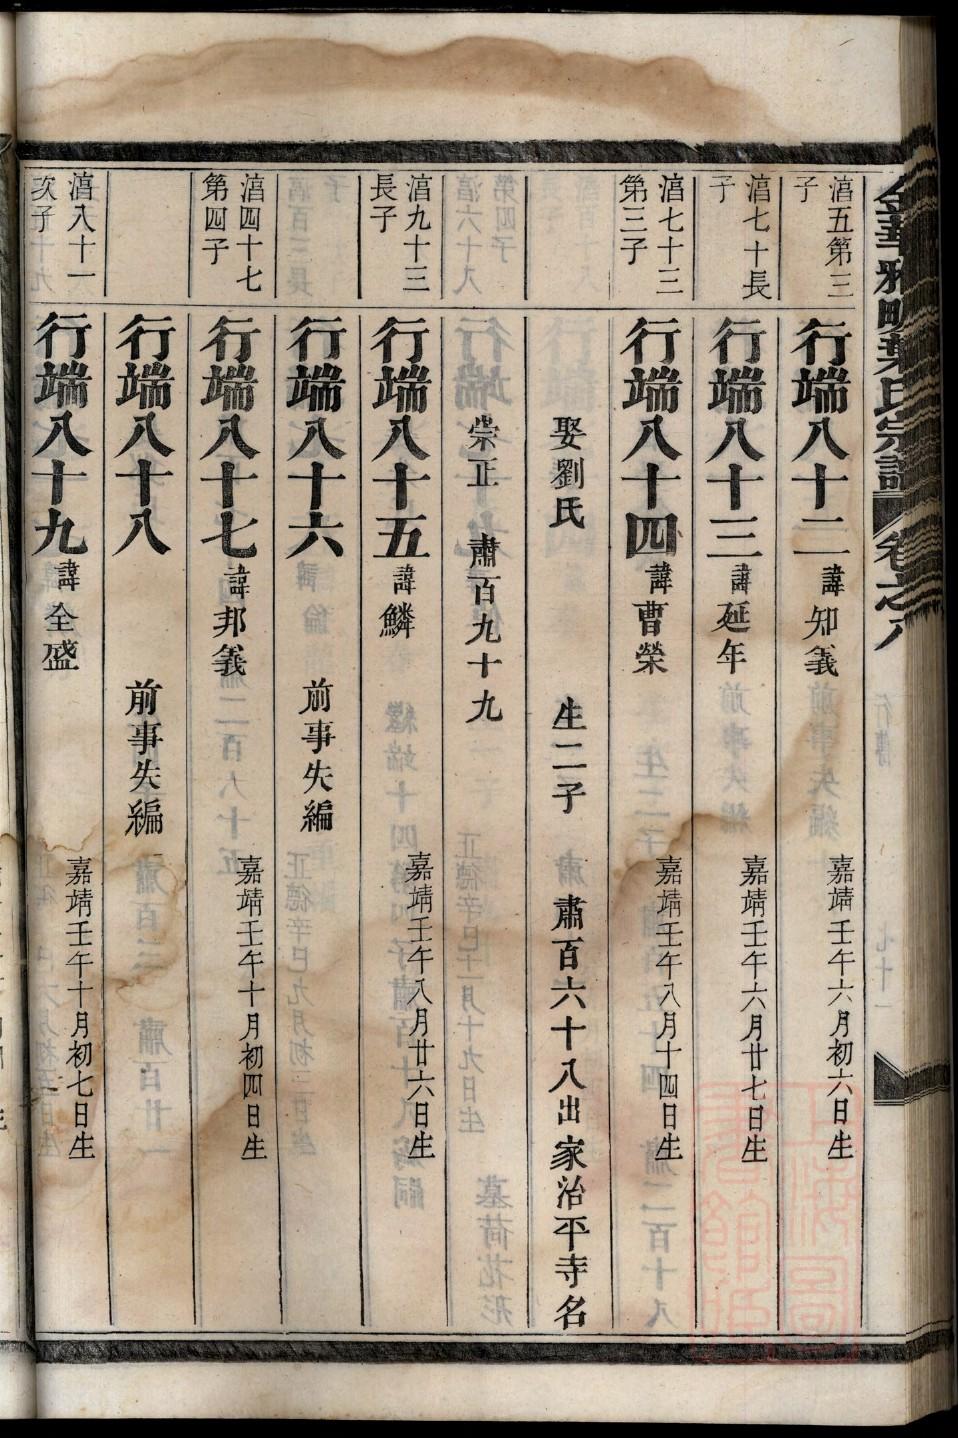 金華雅畈葉氏宗譜 卷之八 行傳 七十一
湻五第三子
行端八十二 諱知義 嘉靖壬午六月初六日生
湻七十長子
行端八十三 諱延年 嘉靖壬午六月廿七日生
湻七十三第三子
行端八十四 諱曹榮 嘉靖壬午八月十四日生
娶劉氏 生二子 肅百六十八出家治平寺名
崇正 肅百九十九
湻九十三長子
行端八十五 諱鱗 嘉靖壬午八月廿六日生
行端八十六 前事失編
湻四十七第四子
行端八十七 諱邦義 嘉靖壬午十月初四日生
行端八十八 前事失編
湻八十一次子
行端八十九 諱全盛 嘉靖壬午十月初七日生